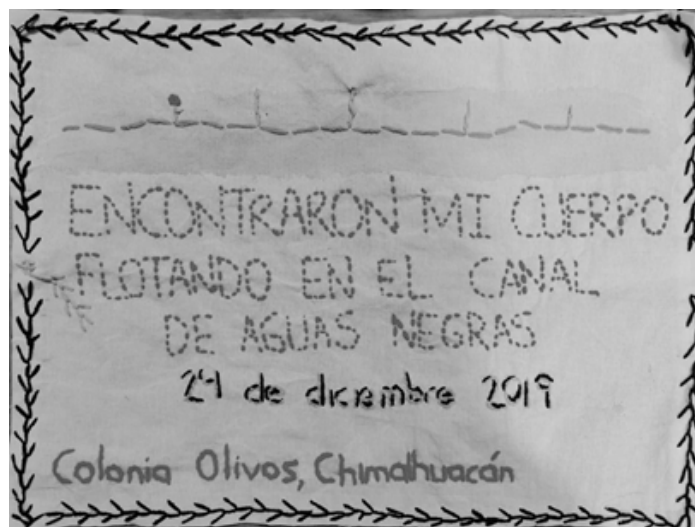 ENCONTRARON MI CUERPO
FLOTANDO EN EL CANAL
DE AGUAS NEGRAS
29 de diciembre 2019
Colonia Olivos, Chimalhuacán